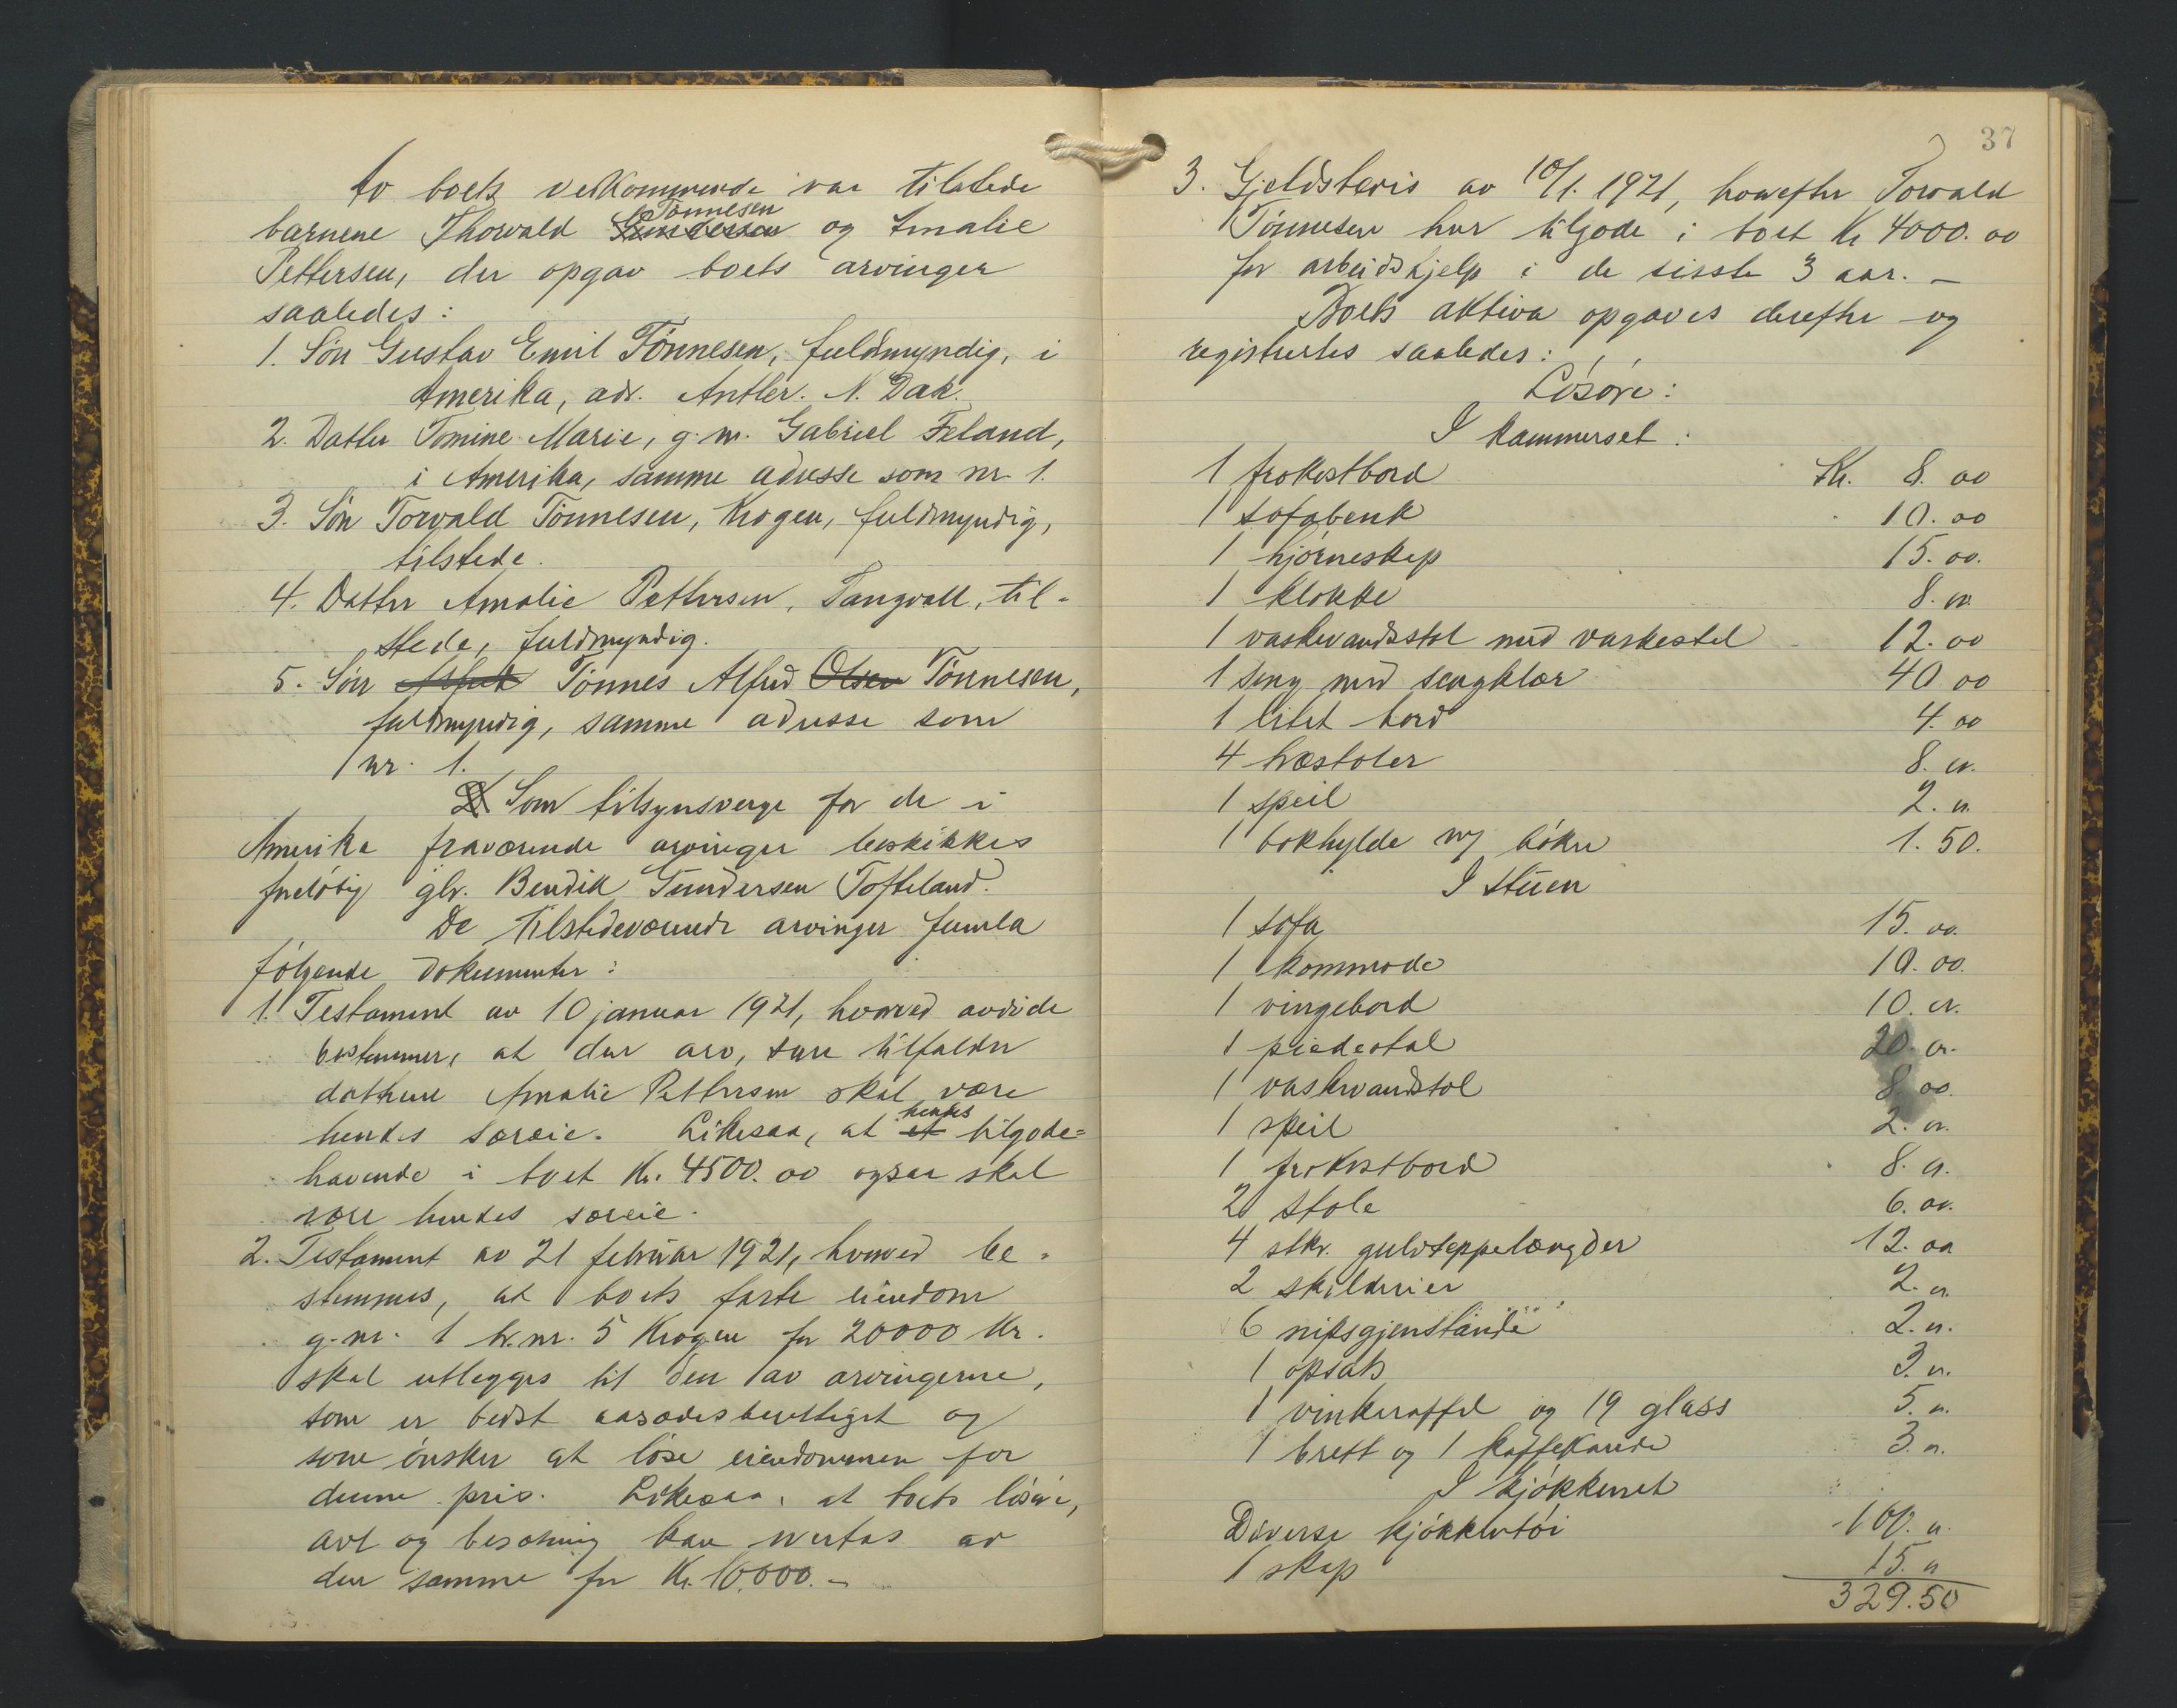 Av boets vedkommende var tilstede
barnene Thorvald Gundersen Tönnesen og Amalie
Pettersen, der opgav boets arvinger
saaledes:
1. Sön Gustav Emil Tönnesen, fuldmyndig, i
Amerika, adr. Antler. N. Dak.
2. Datter Tomine Marie, g. m. Gabriel Feland,
i Amerika, samme adresse som nr. 1.
3. Sön Torvald Tönnesen, Krogen, fuldmyndig,
tilstede.
4. Datter Amalie Pettersen, Tangvall, til-
stede, fuldmyndig.
5. Sön Alfred Tönnes Alfred Olsen Tönnesen,
fuldmyndig, samme adresse som
nr. 1.
Som tilsynsverge for de i
Amerika fraværende arvinger beskikkes
foreløbig glr. Bendik Gundersen Tofteland.
De tilstedeværende arvinger fremla
følgende dokumenter:
1. Testament av 10 januar 1921, hvorved avdøde
bestemmer, at den arv, som tilfalder
datteren Amalie Pettersen skal være
hendes særeie. Likesaa, at et hendes tilgode=
havende i boet Kr. 4500.00 ogsaa skal
være hendes særeie.
2. Testament av 21 februar 1921, hvorved be=
stemmes, at boets faste eiendom
g.nr. 1 br.nr. 5 Krogen for 20000 Kr.
skal utlegges til den av arvingerne,
som er bedst aasædesberettiget og
som ønsker at løse eiendommen for
denne pris. Likesaa, at boets løsøre,
avl og besætning kan overtas av
den samme for Kr. 10,000.-
37
3. Gjeldsbevis av 10/1. 1921, hvorefter Torvald
Tönnesen har tilgode i boet Kr 4000.00
for arbeidshjelp i de sisste 3 aar. -
Boets aktiva opgaves derefter og
registrertes saaledes:
Løsøre:
I kammerset:
1 frokostbord Kr. 8.00
1 sofabenk 10.00
1 hjørneskap 15.00.
1 klokke 8.00
1 vaskevandsstol med vaskestel 12.00
1 seng med sengklær 40 00
1 litet bord 4.00
4 træstoler 8.00.
1 speil 2.00
1 bokhylde m/ bøker 1.50.
I stuen
1 sofa 15.00.
1 kommode 10.00.
1 vingebord 10.00.
1 piedestal 20.00.
1 vaskevandstol 8.00.
1 speil 2.00.
1 frokostbord 8.00.
2 stole 6.00.
4 stkr. gulvteppelængder 12.00
2 skilderier 2.00.
6 nipsgjenstande 2.00.
1 opsats 3.00.
1 vinkaraffel og 19 glass 5.00.
1 brett og 1 kaffekande 3.00.
I kjøkkenet
Diverse kjøkkentøi 100.00.
1 skap 15.00
329.50